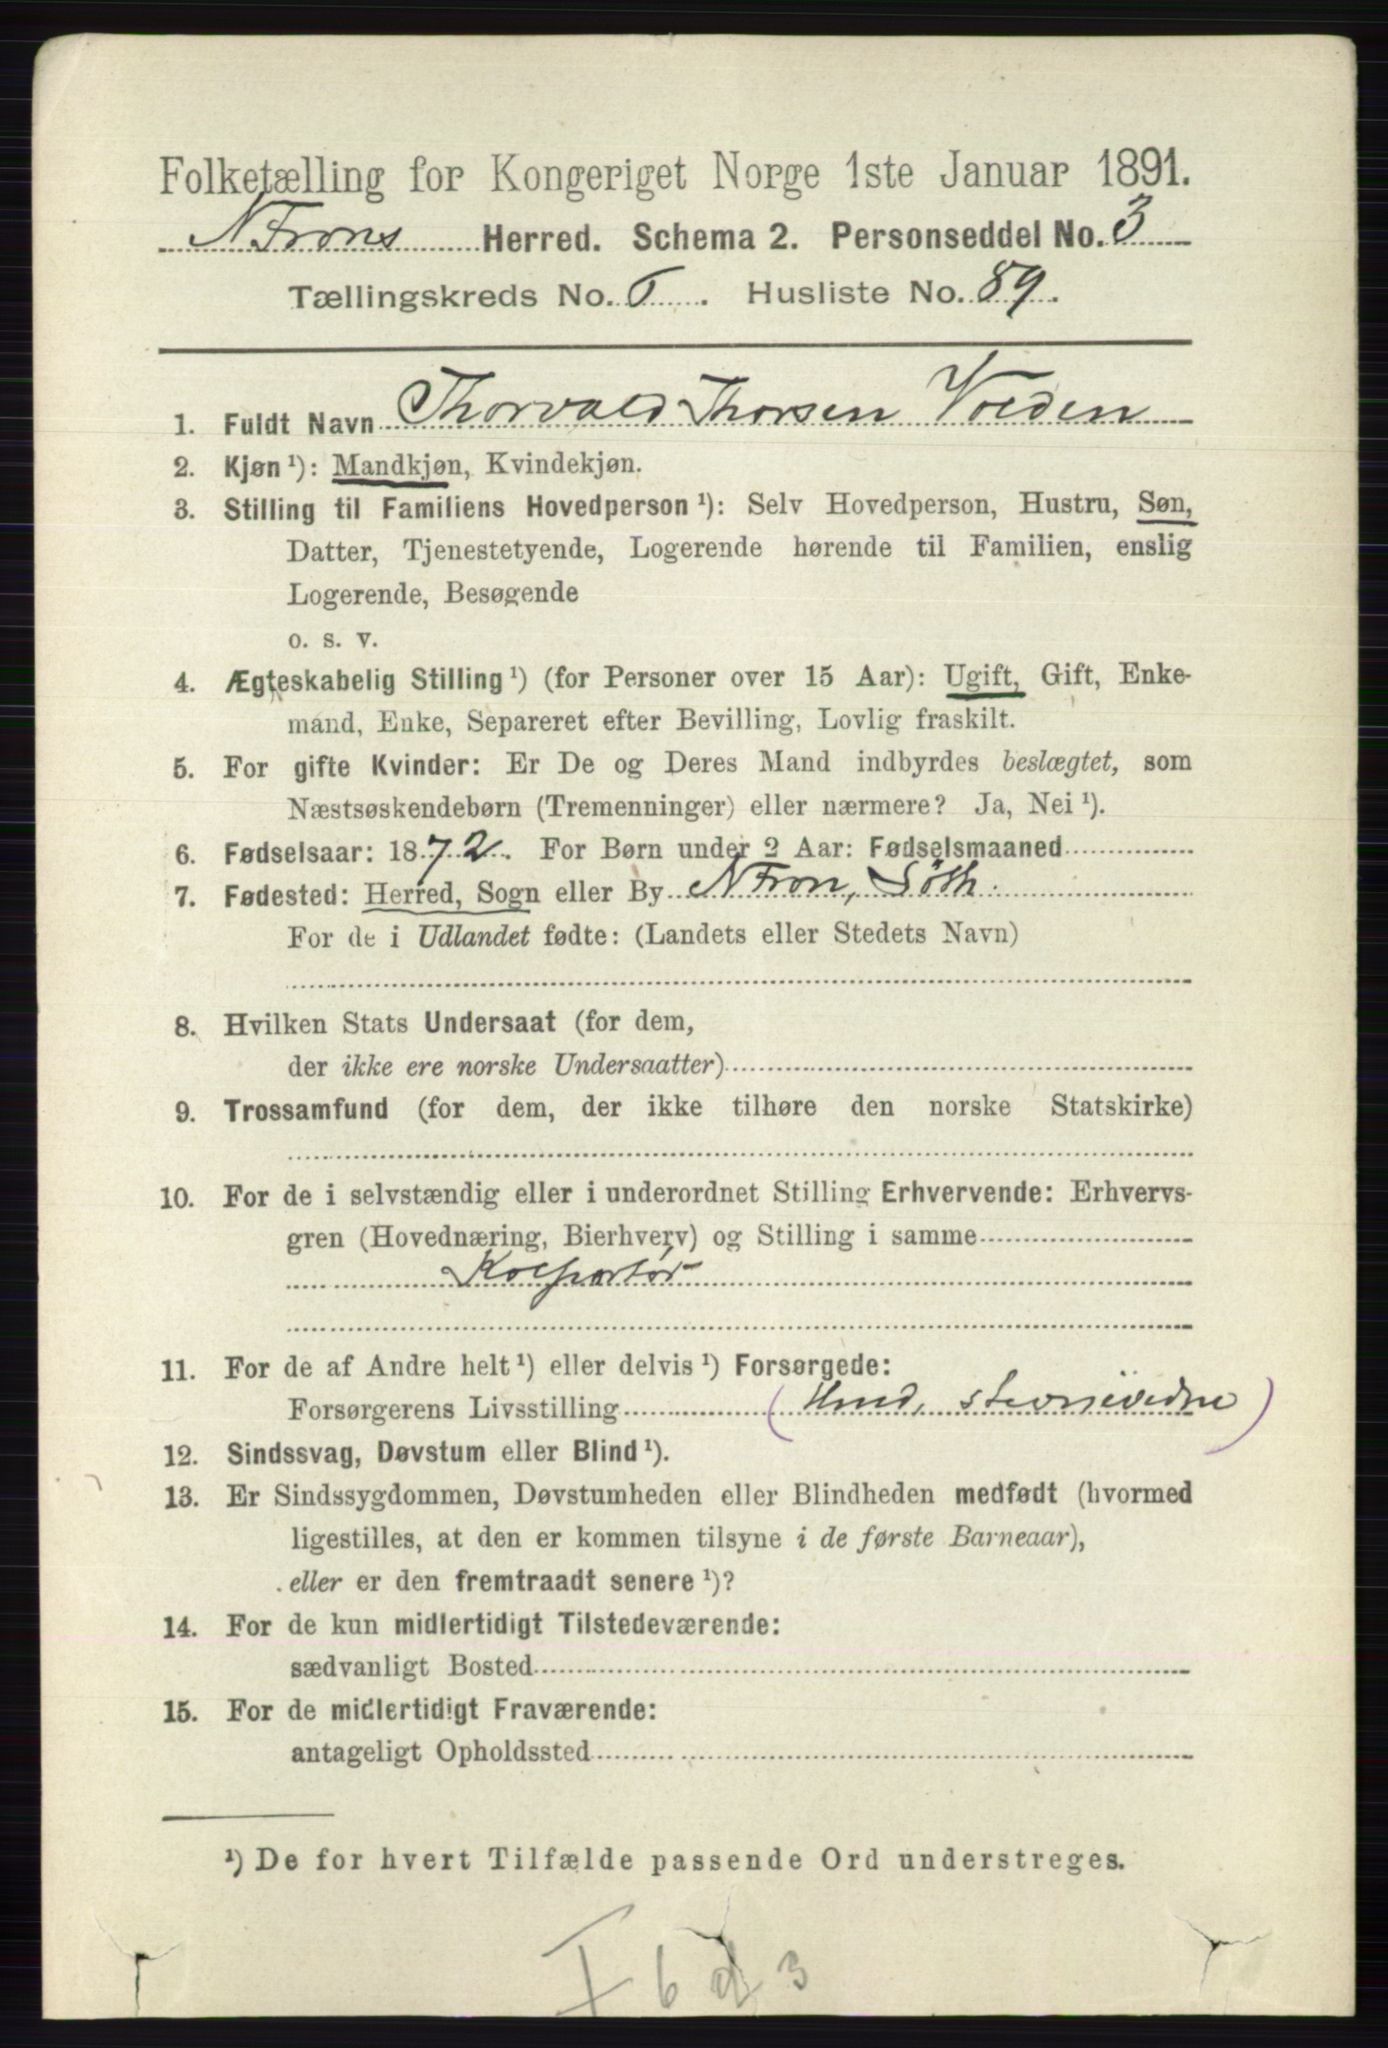 Folketælling for Kongeriget Norge 1ste Januar 1891.
N Frons Herred. Schema 2. Personseddel No. 3
Tællingskreds No. 6. Husliste No. 89.
1. Fuldt Navn Thorvald Thorsen Volden
2. Kjøn ¹): Mandkjøn, Kvindekjøn.
3. Stilling til Familiens Hovedperson ¹): Selv Hovedperson, Hustru, Søn,
Datter, Tjenestetyende, Logerende hørende til Familien, enslig
Logerende, Besøgende
o. s. v.
4. Ægteskabelig Stilling ¹) (for Personer over 15 Aar): Ugift, Gift, Enke-
mand, Enke, Separeret efter Bevilling, Lovlig fraskilt.
5. For gifte Kvinder: Er De og Deres Mand indbyrdes beslægtet, som
Næstsøskendebørn (Tremenninger) eller nærmere? Ja, Nei ¹).
6. Fødselsaar: 1872. For Børn under 2 Aar: Fødselsmaaned
7. Fødested: Herred, Sogn eller By N Fron, Söth.
For de i Udlandet fødte: (Landets eller Stedets Navn)
8. Hvilken Stats Undersaat (for dem,
der ikke ere norske Undersaatter)
9. Trossamfund (for dem, der ikke tilhøre den norske Statskirke)
10. For de i selvstændig eller i underordnet Stilling Erhvervende: Erhvervs-
gren (Hovednæring, Bierhverv) og Stilling i samme
Kolportör
11. For de af Andre helt ¹) eller delvis ¹) Forsørgede:
Forsørgerens Livsstilling
12. Sindssvag, Døvstum eller Blind ¹).
13. Er Sindssygdommen, Døvstumheden eller Blindheden medfødt (hvormed
ligestilles, at den er kommen tilsyne i de første Barneaar),
eller er den fremtraadt senere ¹)?
14. For de kun midlertidigt Tilstedeværende:
sædvanligt Bosted
15. For de midlertidigt Fraværende:
antageligt Opholdssted
¹) De for hvert Tilfælde passende Ord understreges.
I 6 d 3